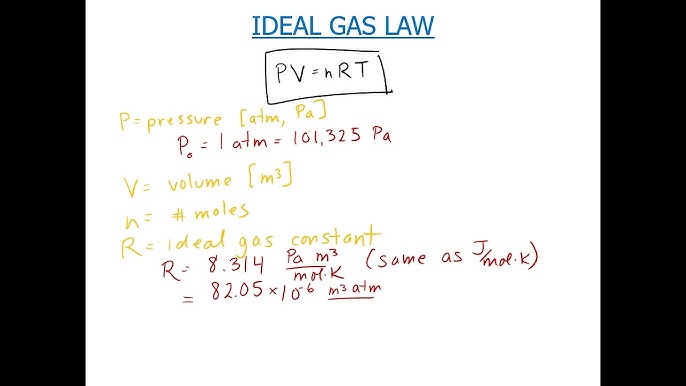 IDEAL GAS LAW
PV=nRT
P=pressure [atm, Pa]
P₀ = 1 atm = 101,325 Pa
V= volume [m³]
n= # moles
R= ideal gas constant
R= 8.314 Pa m³/mol·K (same as J/mol·K)
= 82.05 × 10⁻⁶ m³ atm